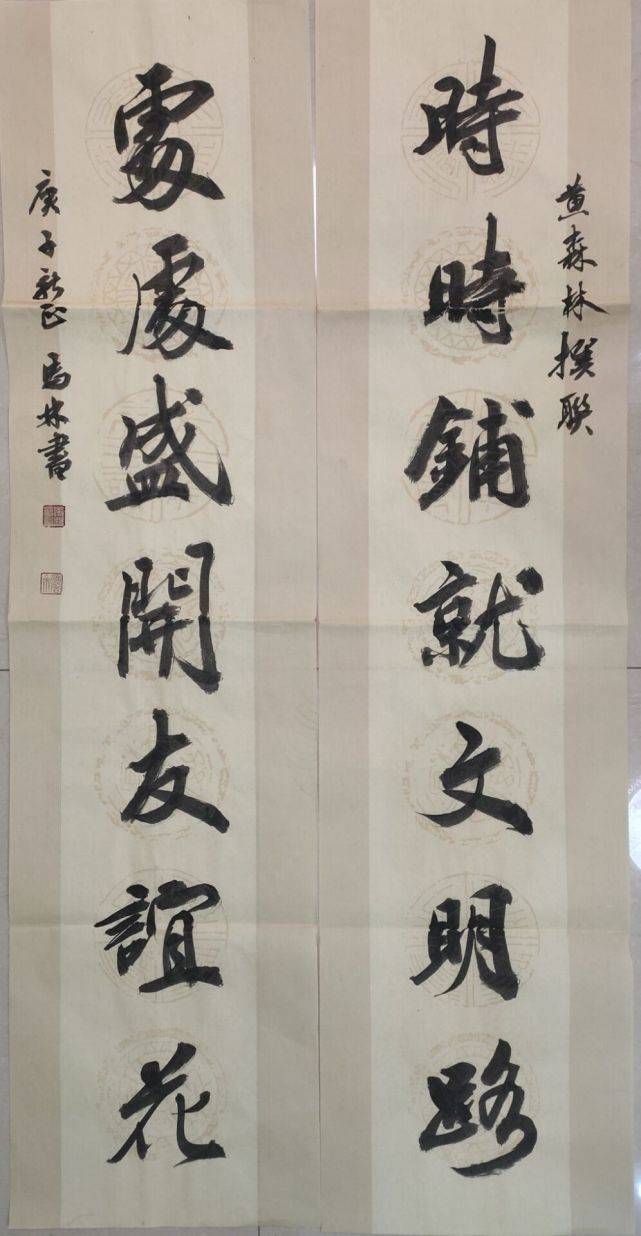 黄森林撰聯
時時鋪就文明路
處處盛開友誼花
庚子新正馬林書